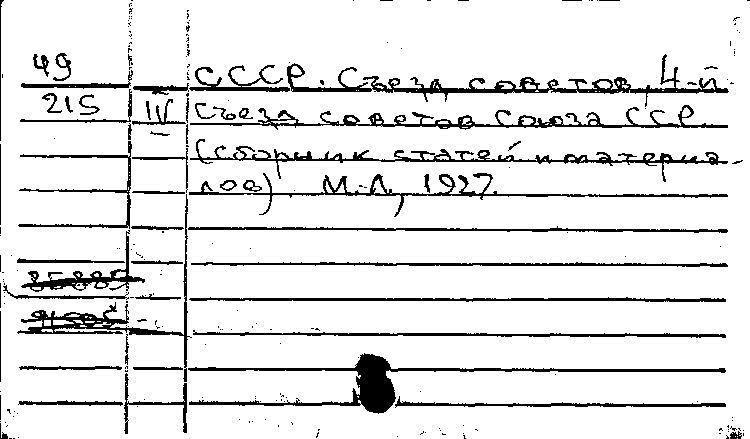 49 СССР. Съезд советов, 4-й.
215 IV Съезд советов Союза ССР.
(сборник статей и материа-
лов). М.-Л., 1927.